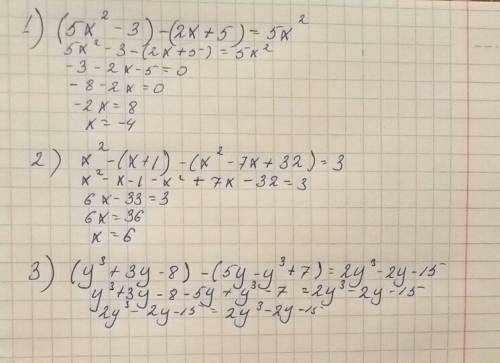 1) (5x² - 3) - (2x + 5) = 5x²
5x² - 3 - (2x + 5) = 5x²
-3 - 2x - 5 = 0
-8 - 2x = 0
-2x = 8
x = -4
2) x² - (x + 1) - (x² - 7x + 32) = 3
x² - x - 1 - x² + 7x - 32 = 3
6x - 33 = 3
6x = 36
x = 6
3) (y³ + 3y - 8) - (5y - y³ + 7) = 2y³ - 2y - 15
y³ + 3y - 8 - 5y + y³ - 7 = 2y³ - 2y - 15
2y³ - 2y - 15 = 2y³ - 2y - 15